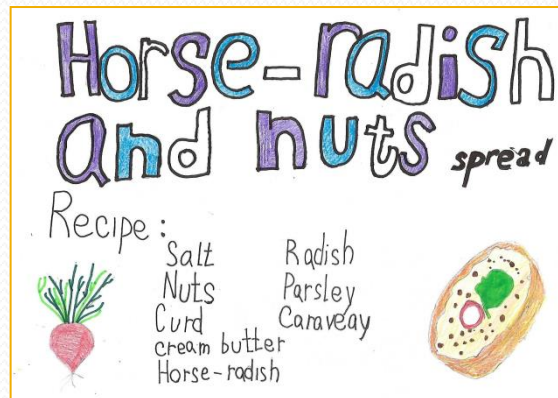 Horse-radish
and nuts spread
Recipe:
Salt
Nuts
Curd
cream butter
Horse-radish
Radish
Parsley
Caraveay